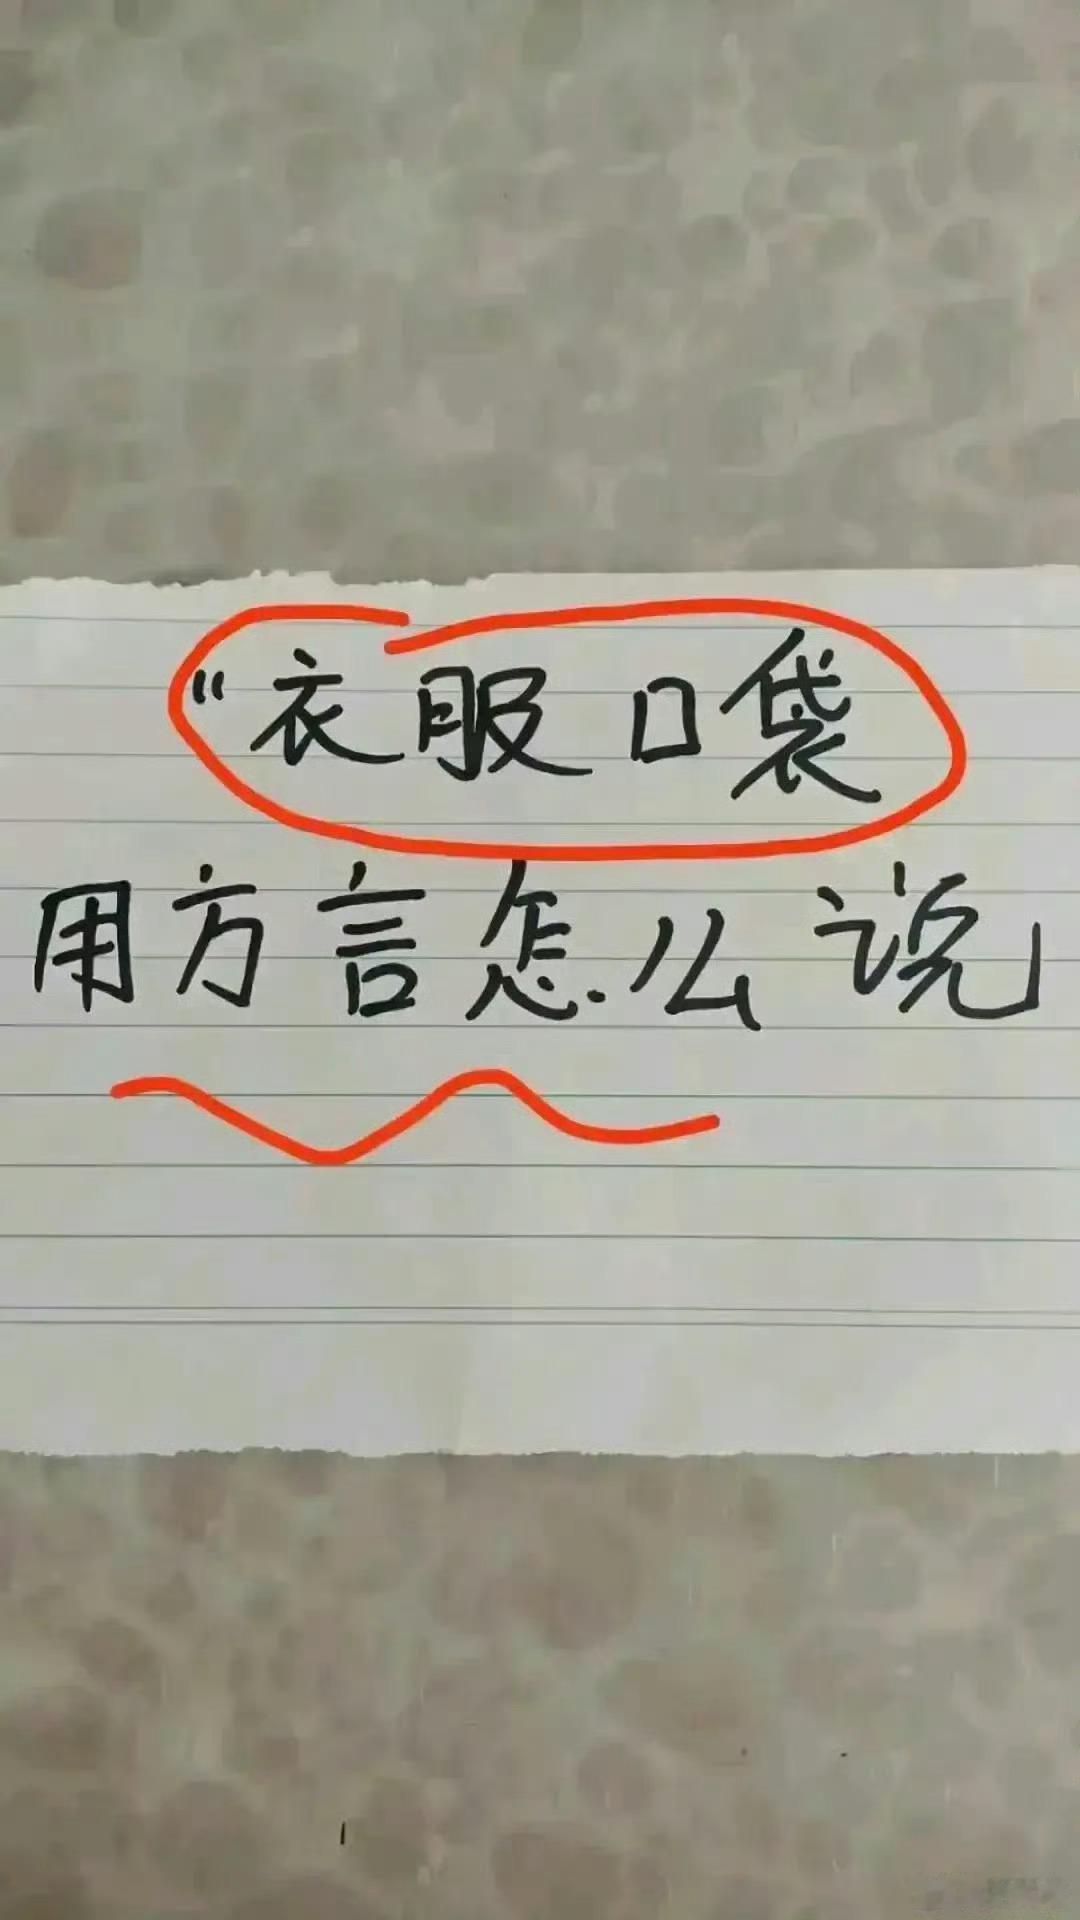 "衣服口袋
用方言怎么说